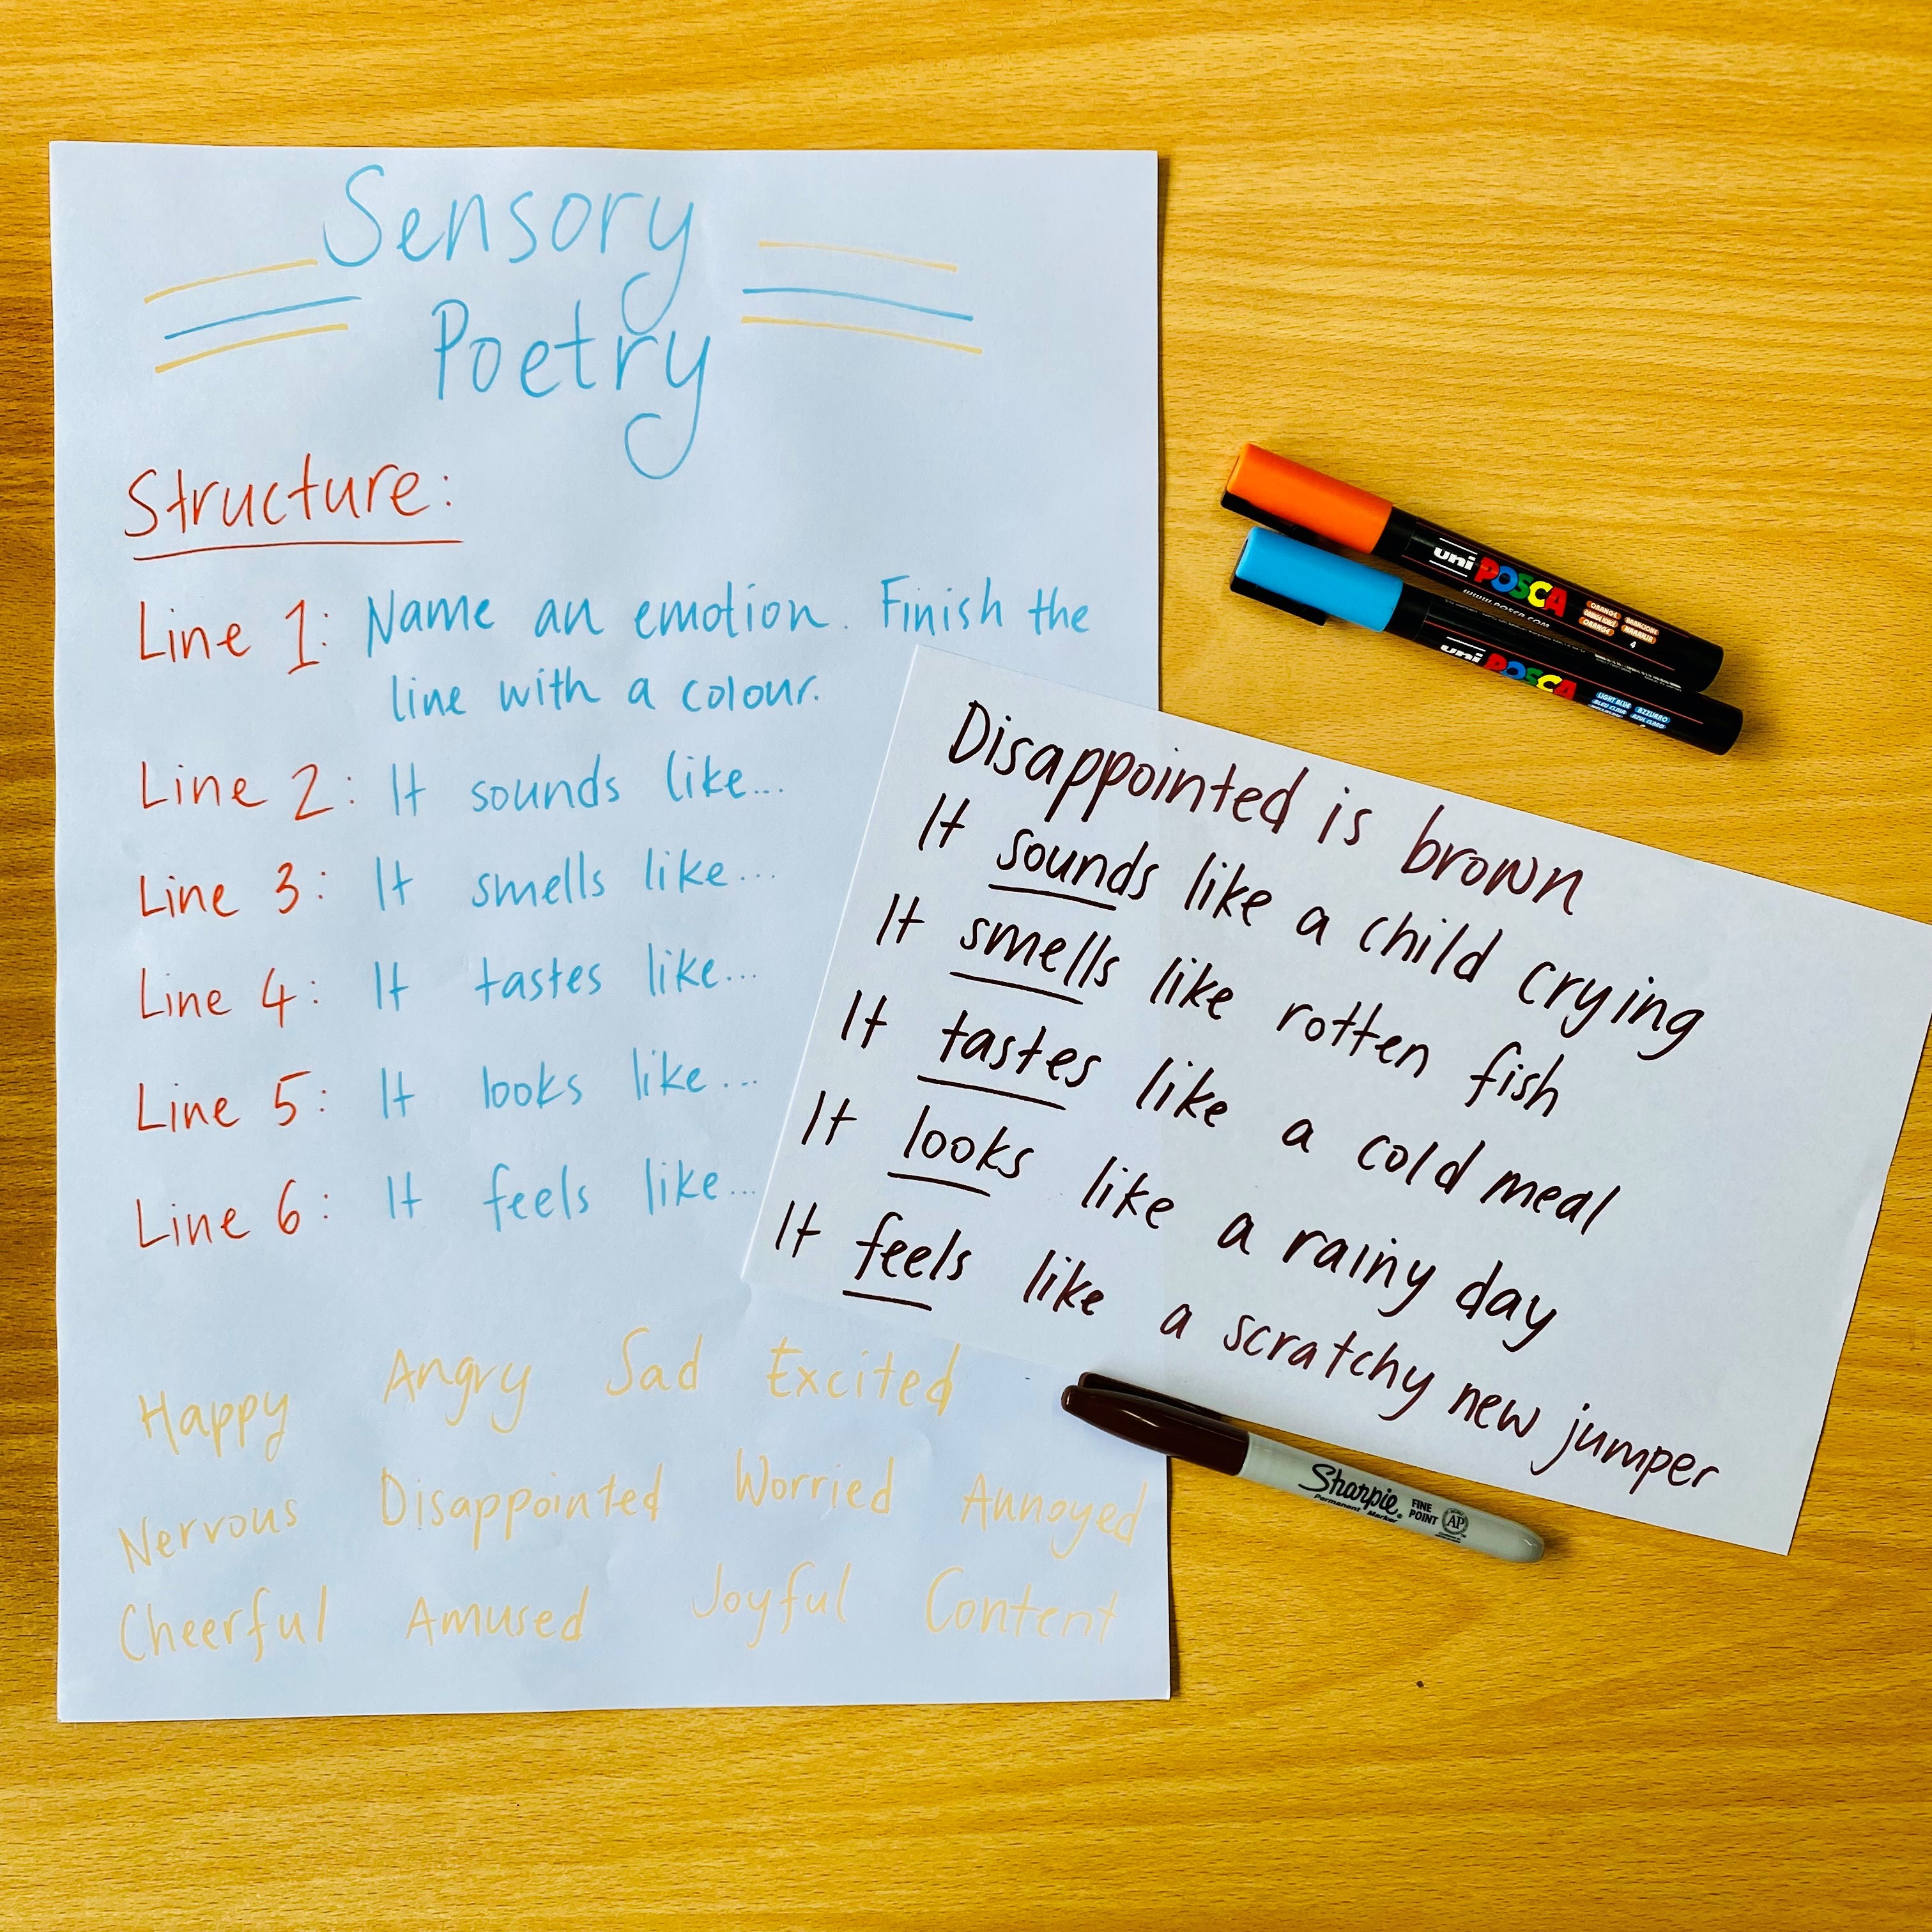 Sensory
Poetry
Structure:
Line 1: Name an emotion. Finish the
line with a colour.
Line 2: It sounds like...
Line 3: It smells like...
Line 4: It tastes like...
Line 5: It looks like...
Line 6: It feels like...
Happy Angry Sad Excited
Nervous Disappointed Worried Annoyed
Cheerful Amused Joyful Content
Disappointed is brown
It sounds like a child crying
It smells like rotten fish
It tastes like a cold meal
It looks like a rainy day
It feels like a scratchy new jumper
uni POSCA
www.posca.com
ORANGE
4
uni POSCA
LIGHT BLUE
AZZURRO
BLEU CLAIR
AZUL CLARO
Sharpie
Permanent Marker
FINE
POINT
AP